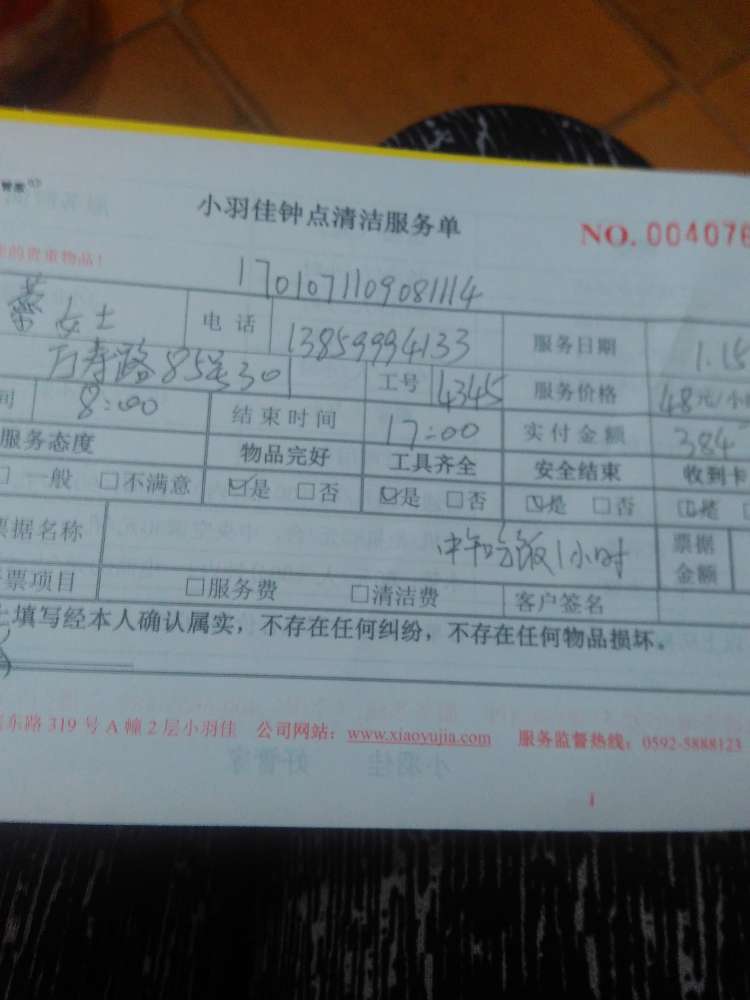 小羽佳钟点清洁服务单 NO. 004076
的贵重物品!
1701071109081114
女士 电话 13859994133 服务日期 1.15
万寿路85号301 工号 4345 服务价格 48元/小
间 8:00 结束时间 17:00 实付金额 384
服务态度 物品完好 工具齐全 安全结束 收到卡
□一般 □不满意 ☑是 □否 ☑是 □否 ☑是 □否 ☑是
票据名称 中午吃饭1小时 票据金额
票项目 □服务费 □清洁费 客户签名
上填写经本人确认属实，不存在任何纠纷，不存在任何物品损坏。
东路 319 号 A 幢 2 层小羽佳 公司网站：www.xiaoyujia.com 服务监督热线：0592-5888123
1